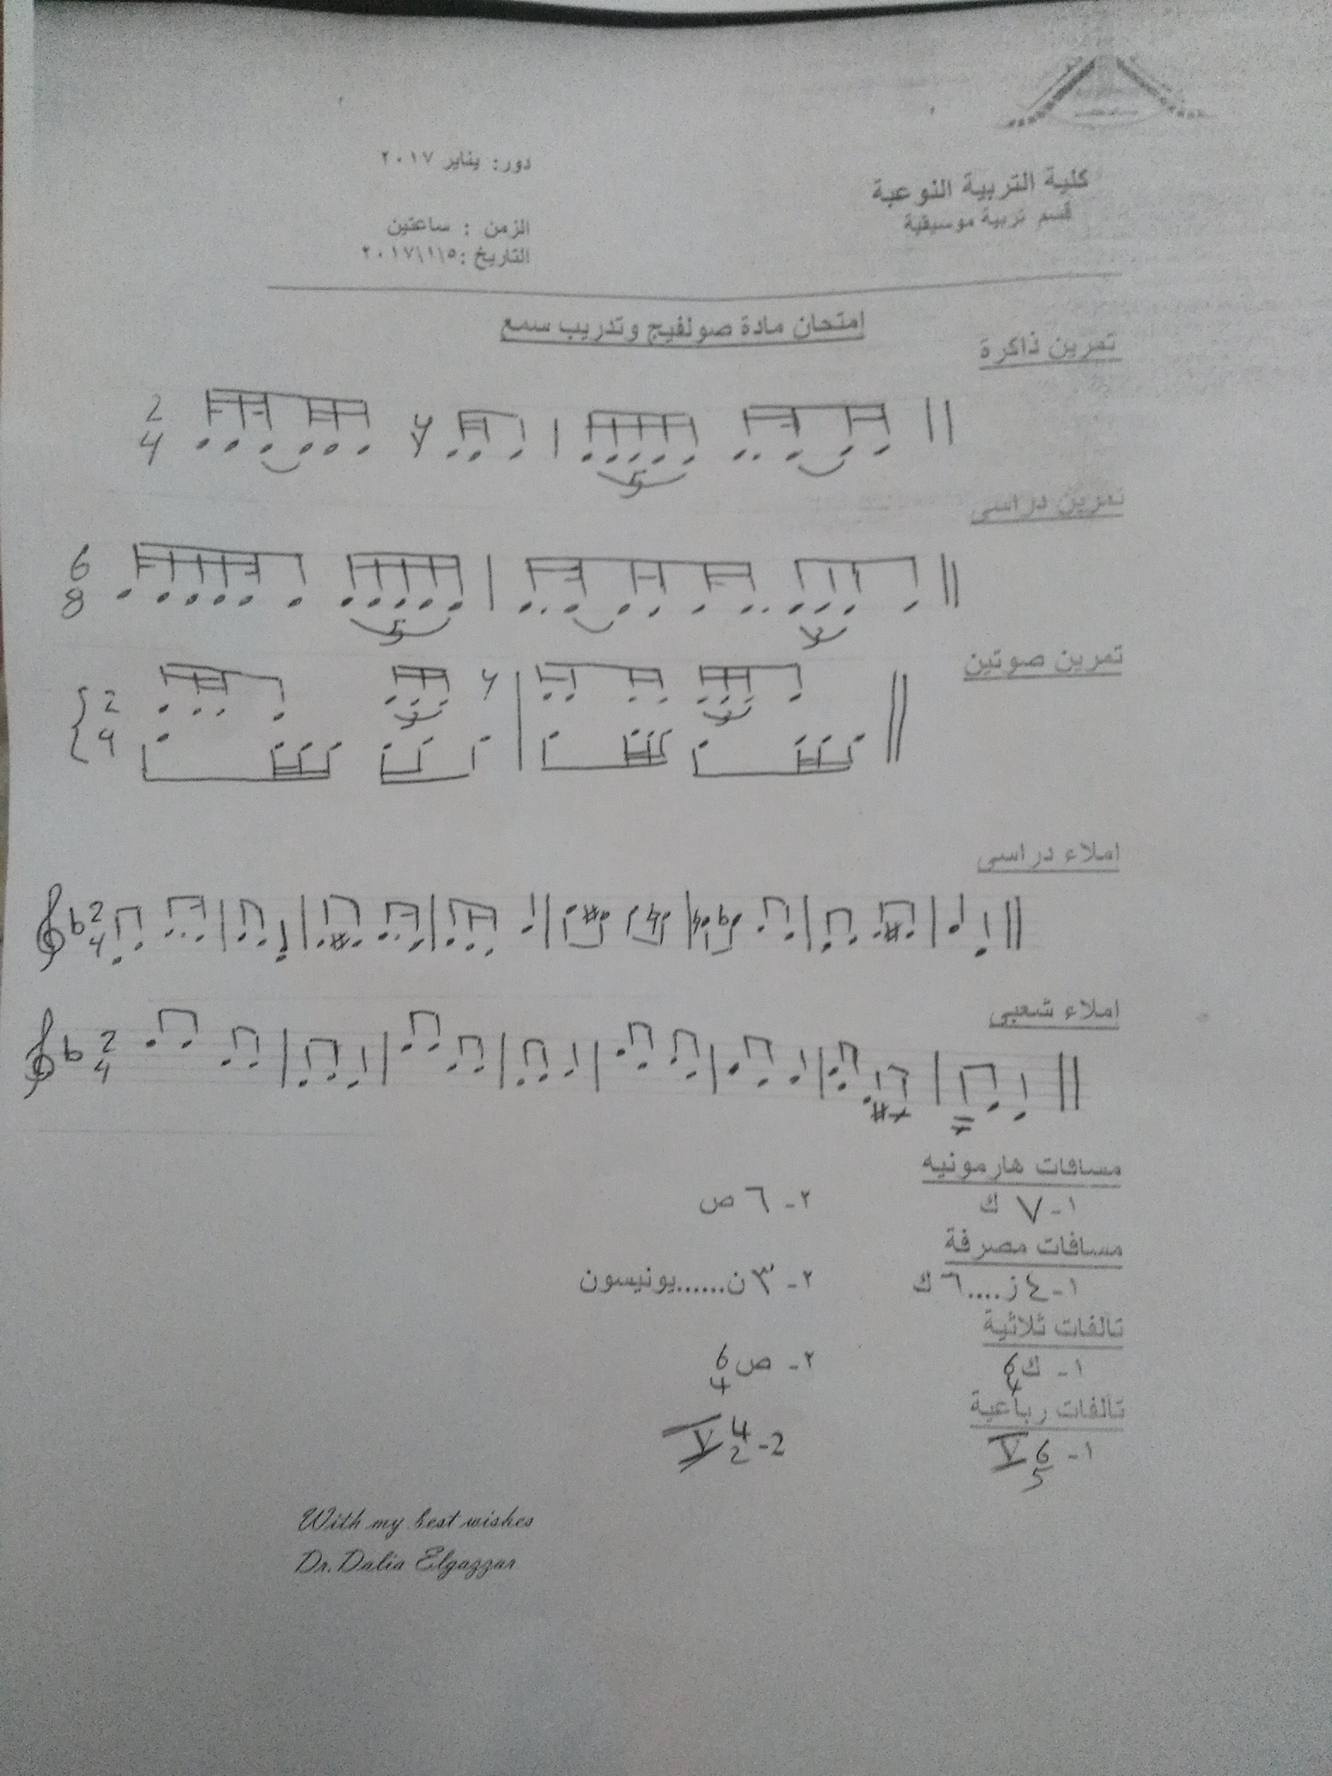 كلية التربية النوعية
قسم تربية موسيقية
دور: يناير ٢٠١٧
الزمن : ساعتين
التاريخ :٢٠١٧\١\٥
إمتحان مادة صولفيج وتدريب سمع
تمرين ذاكرة
2
4
5
تمرين دراسى
6
8
5
3
تمرين صوتين
2
4
3
3
املاء دراسى
2
4
املاء شعبى
2
4
مسافات هارمونيه
١- ٧ ك
٢- ٦ ص
مسافات مصرفة
١- ٤ ز....٦ ك
٢- ٣ ن......يونيسون
تالفات ثلاثية
١- ك 6 4
٢- ص 6 4
تالفات رباعية
١- V 6 5
2- V 4 2
With my best wishes
Dr. Dalia Elgazzar